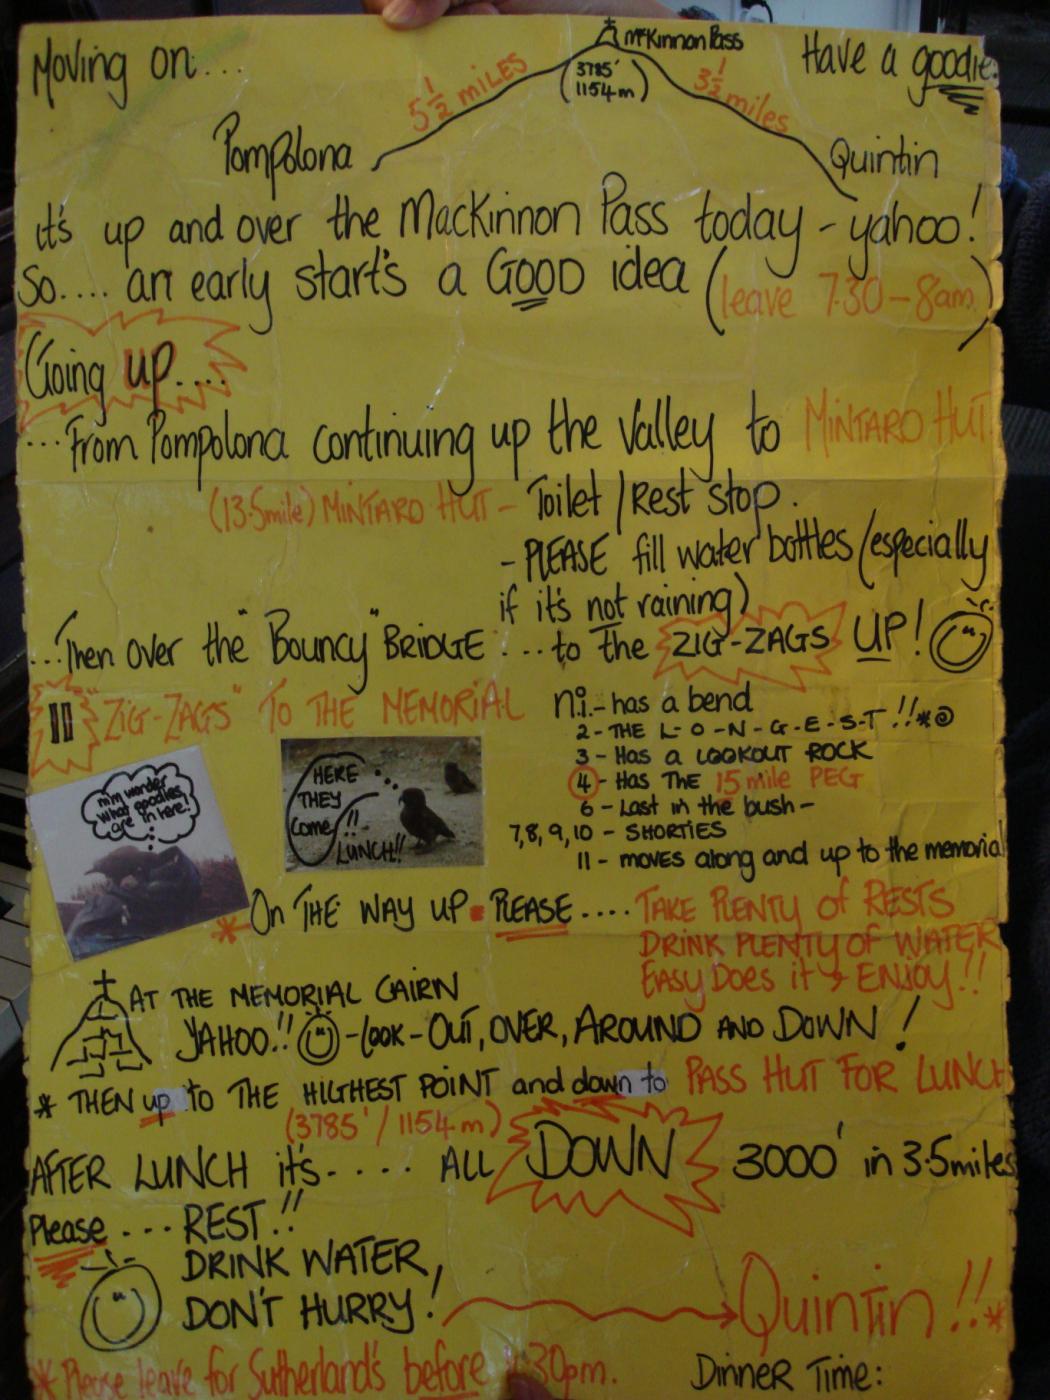 Moving on....
McKinnon Pass
Have a goodie:
5 1/2 miles
(3785'
1154m)
3 1/2 miles
Pompolona
Quintin
it's up and over the MacKinnon Pass today - yahoo!
So.... an early start's a GOOD idea (leave 7.30-8am)
Going up....
...From Pompolona continuing up the Valley to MINTARO HUT
(13.5mile) MINTARO HUT - Toilet / Rest stop.
- PLEASE fill water bottles (especially
if it's not raining)
...Then over the "Bouncy" BRIDGE ...to the ZIG-ZAGS UP!
11 "ZIG-ZAGS" TO THE MEMORIAL
n.1.- has a bend
2 - THE L-O-N-G-E-S-T!!*@
3 - Has a LOOKOUT ROCK
4 - Has THE 15 mile PEG
6 - Last in the bush -
7,8,9,10 - SHORTIES
11 - moves along and up to the memorial
mm wonder
what goodies
are in here!
HERE
THEY
come!!
LUNCH!!
*On THE WAY UP PLEASE.... TAKE PLENTY of RESTS
DRINK PLENTY OF WATER
EASY DOES it → ENJOY!!
AT THE MEMORIAL CAIRN
YAHOO!! - look - OUT, OVER, AROUND AND DOWN!
* THEN up to THE HIGHEST POINT and down to PASS HUT FOR LUNCH
(3785' / 1154m)
AFTER LUNCH it's.... ALL DOWN 3000' in 3.5miles
Please ... REST!!
DRINK WATER,
DON'T HURRY! → Quintin!!*
*Please leave for Sutherland's before 30pm.
Dinner Time: